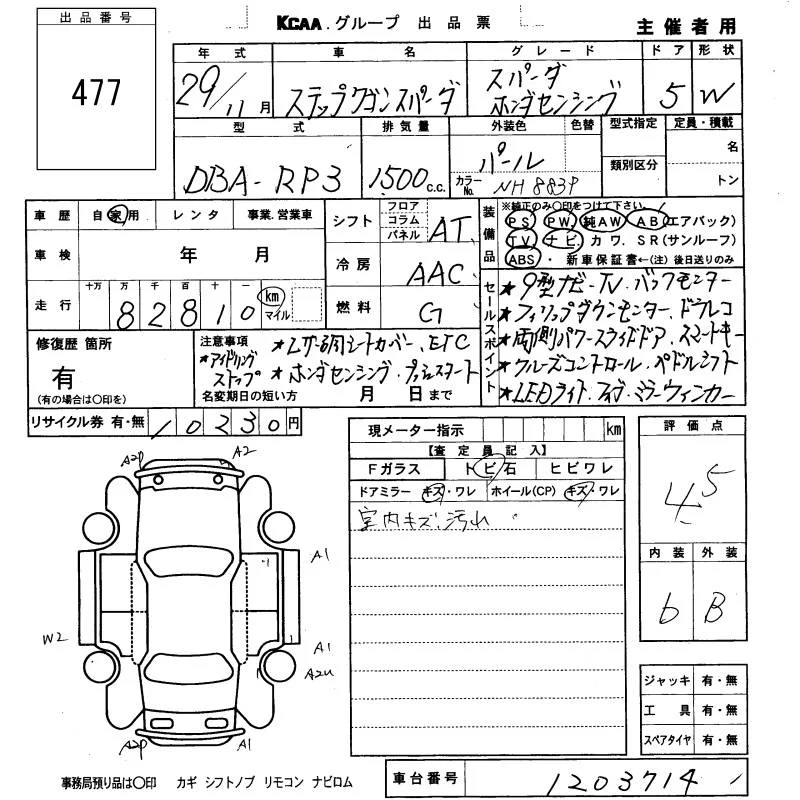 出品番号
477
KCAA.グループ 出品票
主催者用
年式 車名 グレード ドア 形状
29/11月 ステップワゴンスパーダ スパーダ ホンダセンシング 5 W
型式 排気量 外装色 色替 型式指定 定員・積載
DBA-RP3 1500 c.c. パール 名
カラーNo. NH883P 類別区分 トン
車歴 自家用 レンタ 事業.営業車
シフト フロア コラム パネル AT
車検 年 月
冷房 AAC
走行 十万 万 千 百 十 一 km マイル
82810
燃料 G
装備品 ※純正のみ〇印をつけて下さい。
PS PW 純AW AB(エアバック)
TV ナビ カワ.SR(サンルーフ)
ABS ・新車保証書←(注)後日送りのみ
セールスポイント
★9型ナビ-TV.バックモニター
★フィリップダウンモニター.ドラレコ
★両側パワースライドドア.スマートキー
★クルーズコントロール.ペドルシフト
★LEDライト.フォグ.ミラーウィンカー
修復歴 箇所
有
(有の場合は〇印を)
注意事項
★アイドリングストップ
★レザー調シートカバー.ETC
★ホンダセンシング.プッシュスタート
名変期日の短い方 月 日まで
リサイクル券 有・無 10230円
現メーター指示 km
【査定員記入】
Fガラス トビ石 ヒビワレ
ドアミラー キズ・ワレ ホイール(CP) キズ・ワレ
室内キズ.汚れ
評価点
4.5
内装 外装
b B
A2P A2
A1
W2 A1
A2U
A2P A1
ジャッキ 有・無
工具 有・無
スペアタイヤ 有・無
事務局預り品は〇印 カギ シフトノブ リモコン ナビロム
車台番号 1203714